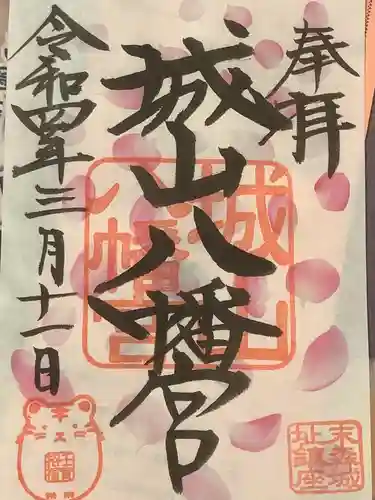 奉拝
城山八幡宮
令和四年三月十一日
城山八幡宮
末森城址講座